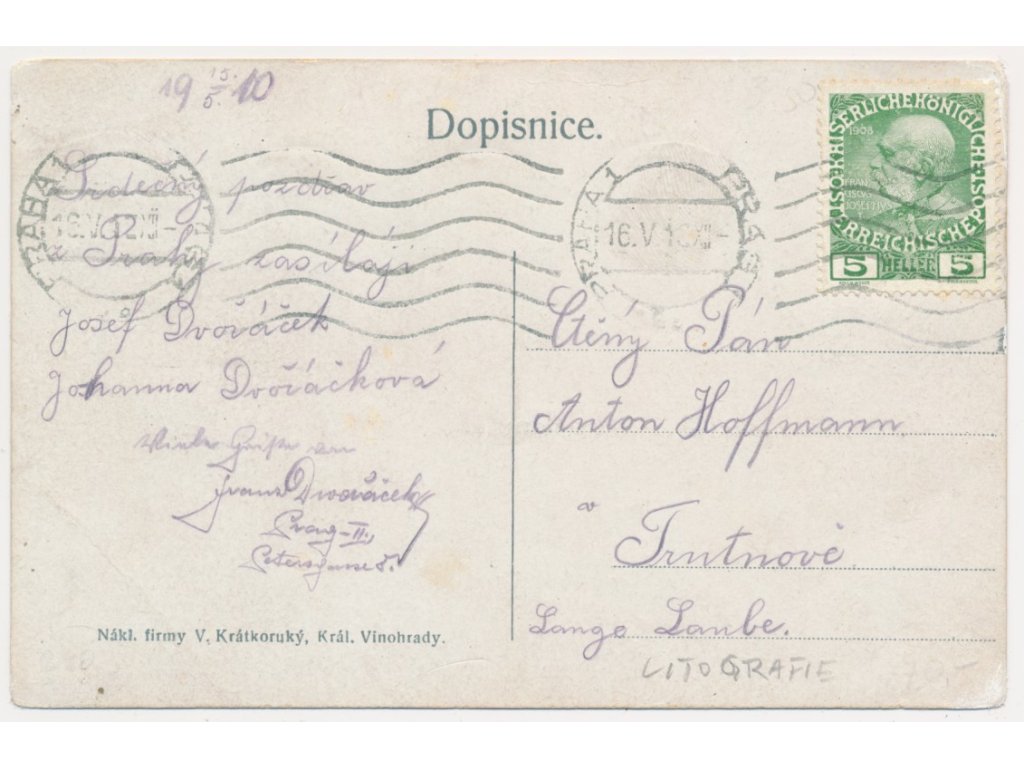 19 15./5. 10
Dopisnice.
Srdečný pozdrav
z Prahy zasílají
Josef Dvořáček
Johanna Dvořáčková
Viele Grüße von
Franz Dwořáček
Prag-II.,
Petersgasse
Nákl. firmy V. Krátkoruký, Král. Vinohrady.
PRAHA 1 PRAG
16.V.
PRAHA 1 PRAG
16.V.
KAISERLICHE KÖNIGLICHE ÖSTERREICHISCHE POST
1908
FRANCISCVS JOSEPHVS I
5 HELLER 5
Ctěný Pán
Anton Hoffmann
v
Trutnově
Lange Laube.
LITOGRAFIE
70,-